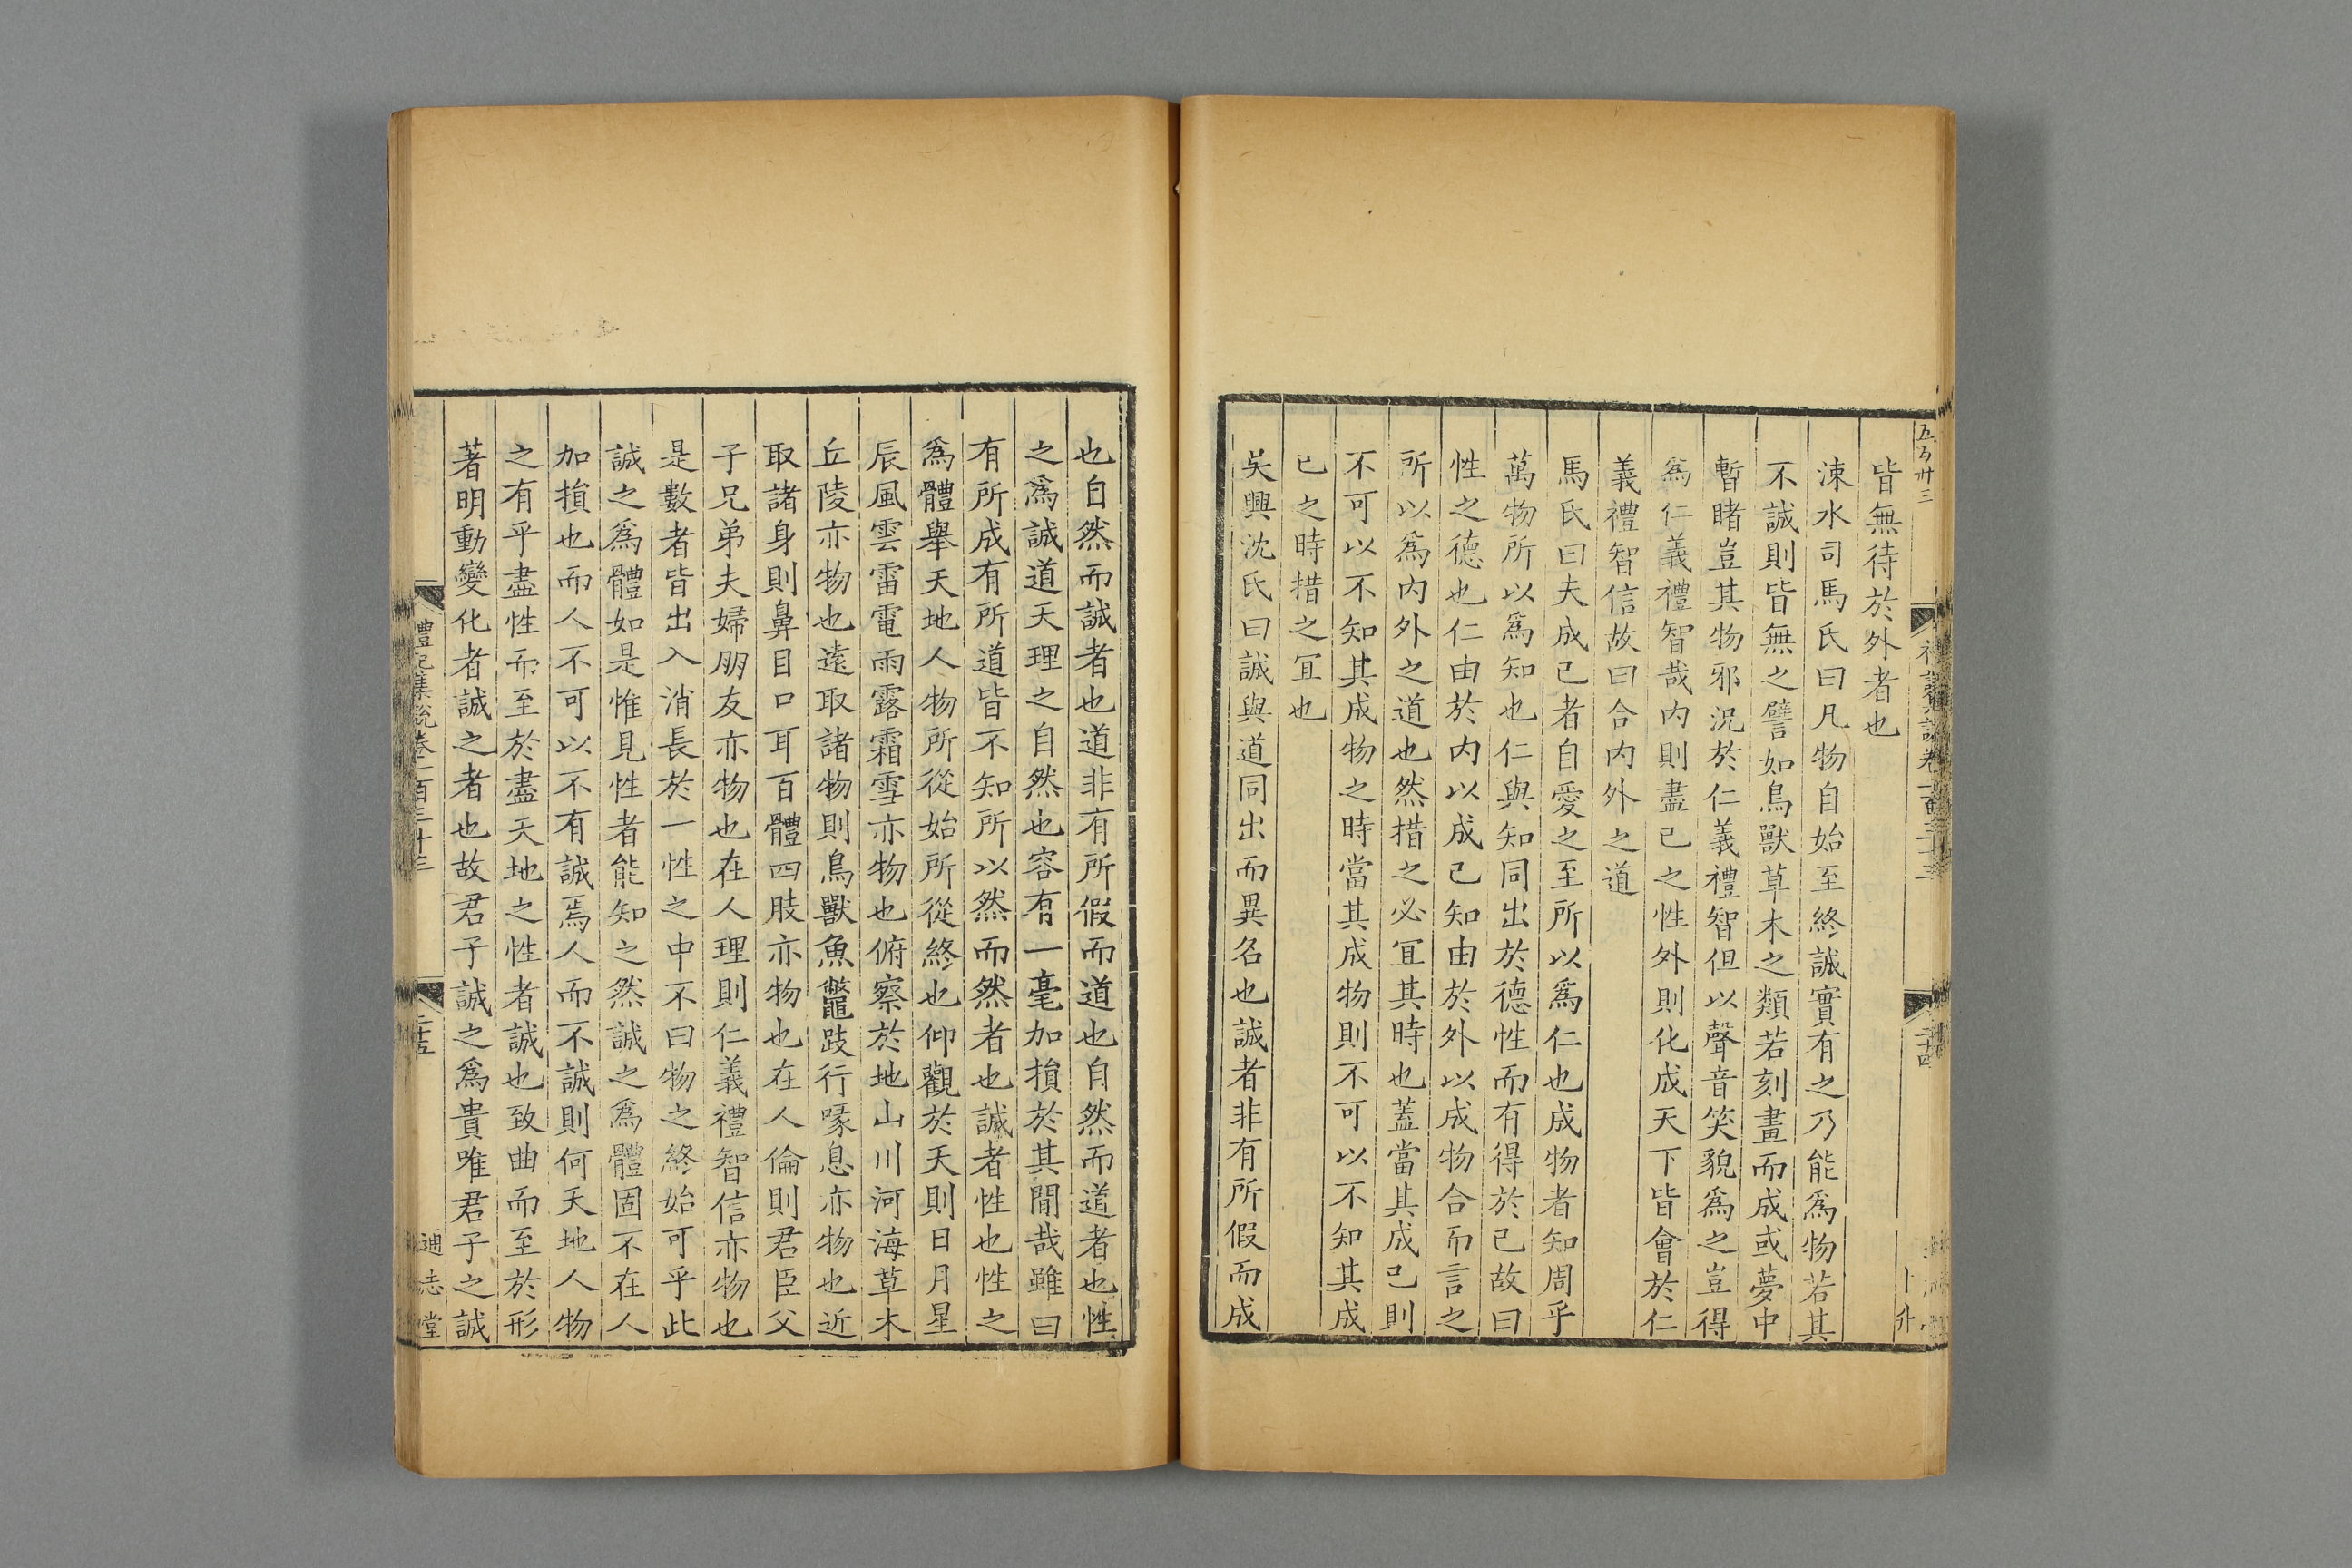 皆無待於外者也
涑水司馬氏曰凡物自始至終誠實有之乃能爲物若其
不誠則皆無之譬如鳥獸草木之類若刻畫而成或夢中
暫睹豈其物邪況於仁義禮智但以聲音笑貌爲之豈得
爲仁義禮智哉内則盡已之性外則化成天下皆會於仁
義禮智信故曰合内外之道
馬氏曰夫成已者自愛之至所以爲仁也成物者知周乎
萬物所以爲知也仁與知同出於德性而有得於已故曰
性之德也仁由於内以成已知由於外以成物合而言之
所以爲内外之道也然措之必冝其時也蓋當其成已則
不可以不知其成物之時當其成物則不可以不知其成
已之時措之冝也
吳興沈氏曰誠與道同出而異名也誠者非有所假而成
也自然而誠者也道非有所假而道也自然而道者也性
之爲誠道天理之自然也容有一毫加損於其間哉雖曰
有所成有所道皆不知所以然而然者也誠者性也性之
爲體舉天地人物所從始所從終也仰觀於天則日月星
辰風雲雷電雨露霜雪亦物也俯察於地山川河海草木
丘陵亦物也遠取諸物則鳥獸魚鼈跂行喙息亦物也近
取諸身則鼻目口耳百體四肢亦物也在人倫則君臣父
子兄弟夫婦朋友亦物也在人理則仁義禮智信亦物也
是數者皆出入消長於一性之中不曰物之終始可乎此
誠之爲體如是惟見性者能知之然誠之爲體固不在人
加損也而人不可以不有誠焉人而不誠則何天地人物
之有乎盡性而至於盡天地之性者誠也致曲而至於形
著明動變化者誠之者也故君子誠之爲貴唯君子之誠
禮記集說卷一百三十三 二十五 通志堂